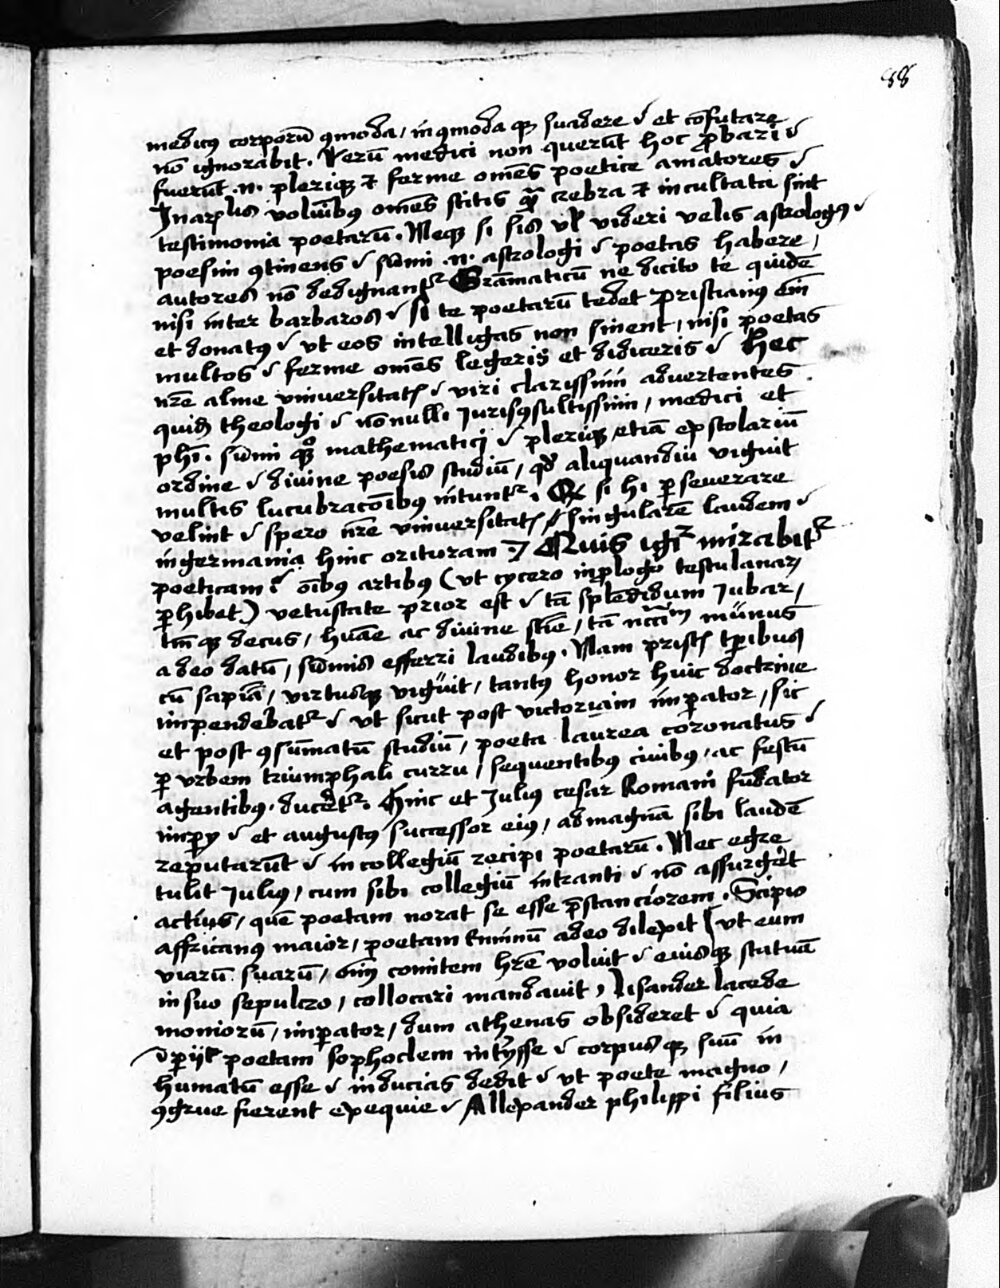 58
medicus corporū ꝯmoda / inꝯmoda qꝫ suadere / et cōfutare
nō ignorabit . Verū medici non querūt hoc probari /
fuerūt .n. pleriqꝫ et ferme omēs poetice amatores /
In ampliss voluībus omēs scitis qꝫ̄ crebra et incultata sint
testimonia poetarū . Neqꝫ si sis vel videri velis astrologus /
poesim ꝯtinens / sūmi .n. astrologi / poetas habere /
autores nō dedignantᷣ Grāmaticū ne dicito te quidē
nisi inter barbaros / si te poetarū tedet Pristianus em̄
et donatus / vt eos intelligas non sinent / nisi poetas
multos / ferme omēs legeris et didiceris / Hec
nr̄e alme vniuersitatis / viri clarissimi aduertentes
quidē theologi / nōnulli Jurisꝯsultissimi / medici et
phī . sūmi qꝫ mathematici / pleriqꝫ etiā epistolariū
ordine / diuine poesis studiū / qd̄ aliquandiu viguit
multis lucubracōibus intuntᷣ . Qz si hi perseuerare
velint / spero nr̄e vniuersitatis / singularē laudem /
in germania hinc orituram . Quis igiᷣ mirabitᷣ
poeticam oībus artibus (vt cycero in prologo testulanarum
perhibet) vetustate prior est / tā splēdidum Jubar /
tm̄ qꝫ decus / hūāe ac diuine sciē / tā nccīm munus
a deo datū / sūmis efferri laudibus . Nam priscis tp̄ribus
cū sapiā / virtusqꝫ viguit / tantus honor huic doctrine
impendebatᷣ / vt sicut post victoriam imperator / sic
et post ꝯsūmatū studiū / poeta laurea coronatus /
per vrbem triumphali curru / sequentibus ciuibus . ac festū
agentibus . ducetᷣ . Hinc et Julius cesar Romani fūdator
imperij / et augustus successor eius / ad magnā sibi laudē
reputarūt / in collegiū recipi poetarū . Nec egre
tulit Julius / cum sibi collegiū intranti / nō assurgēt
actius / quē poetam norat se esse prestanciorem . Scipio
affricanus maior / poetam Enniū adeo dilexit (vt eum
viarū suarū / oīm comitem hr̄e voluit / eiusqꝫ statuā
in suo sepulcro / collocari mandauit / Lisander lacede
moniorū / imperator / dum athenas obsideret / quia
poetam sophoclem interysse / corpusqꝫ suū in
humatū esse / inducias dedit / vt poete magno /
ꝯgrue fierent exequie / Allexander philippi filius